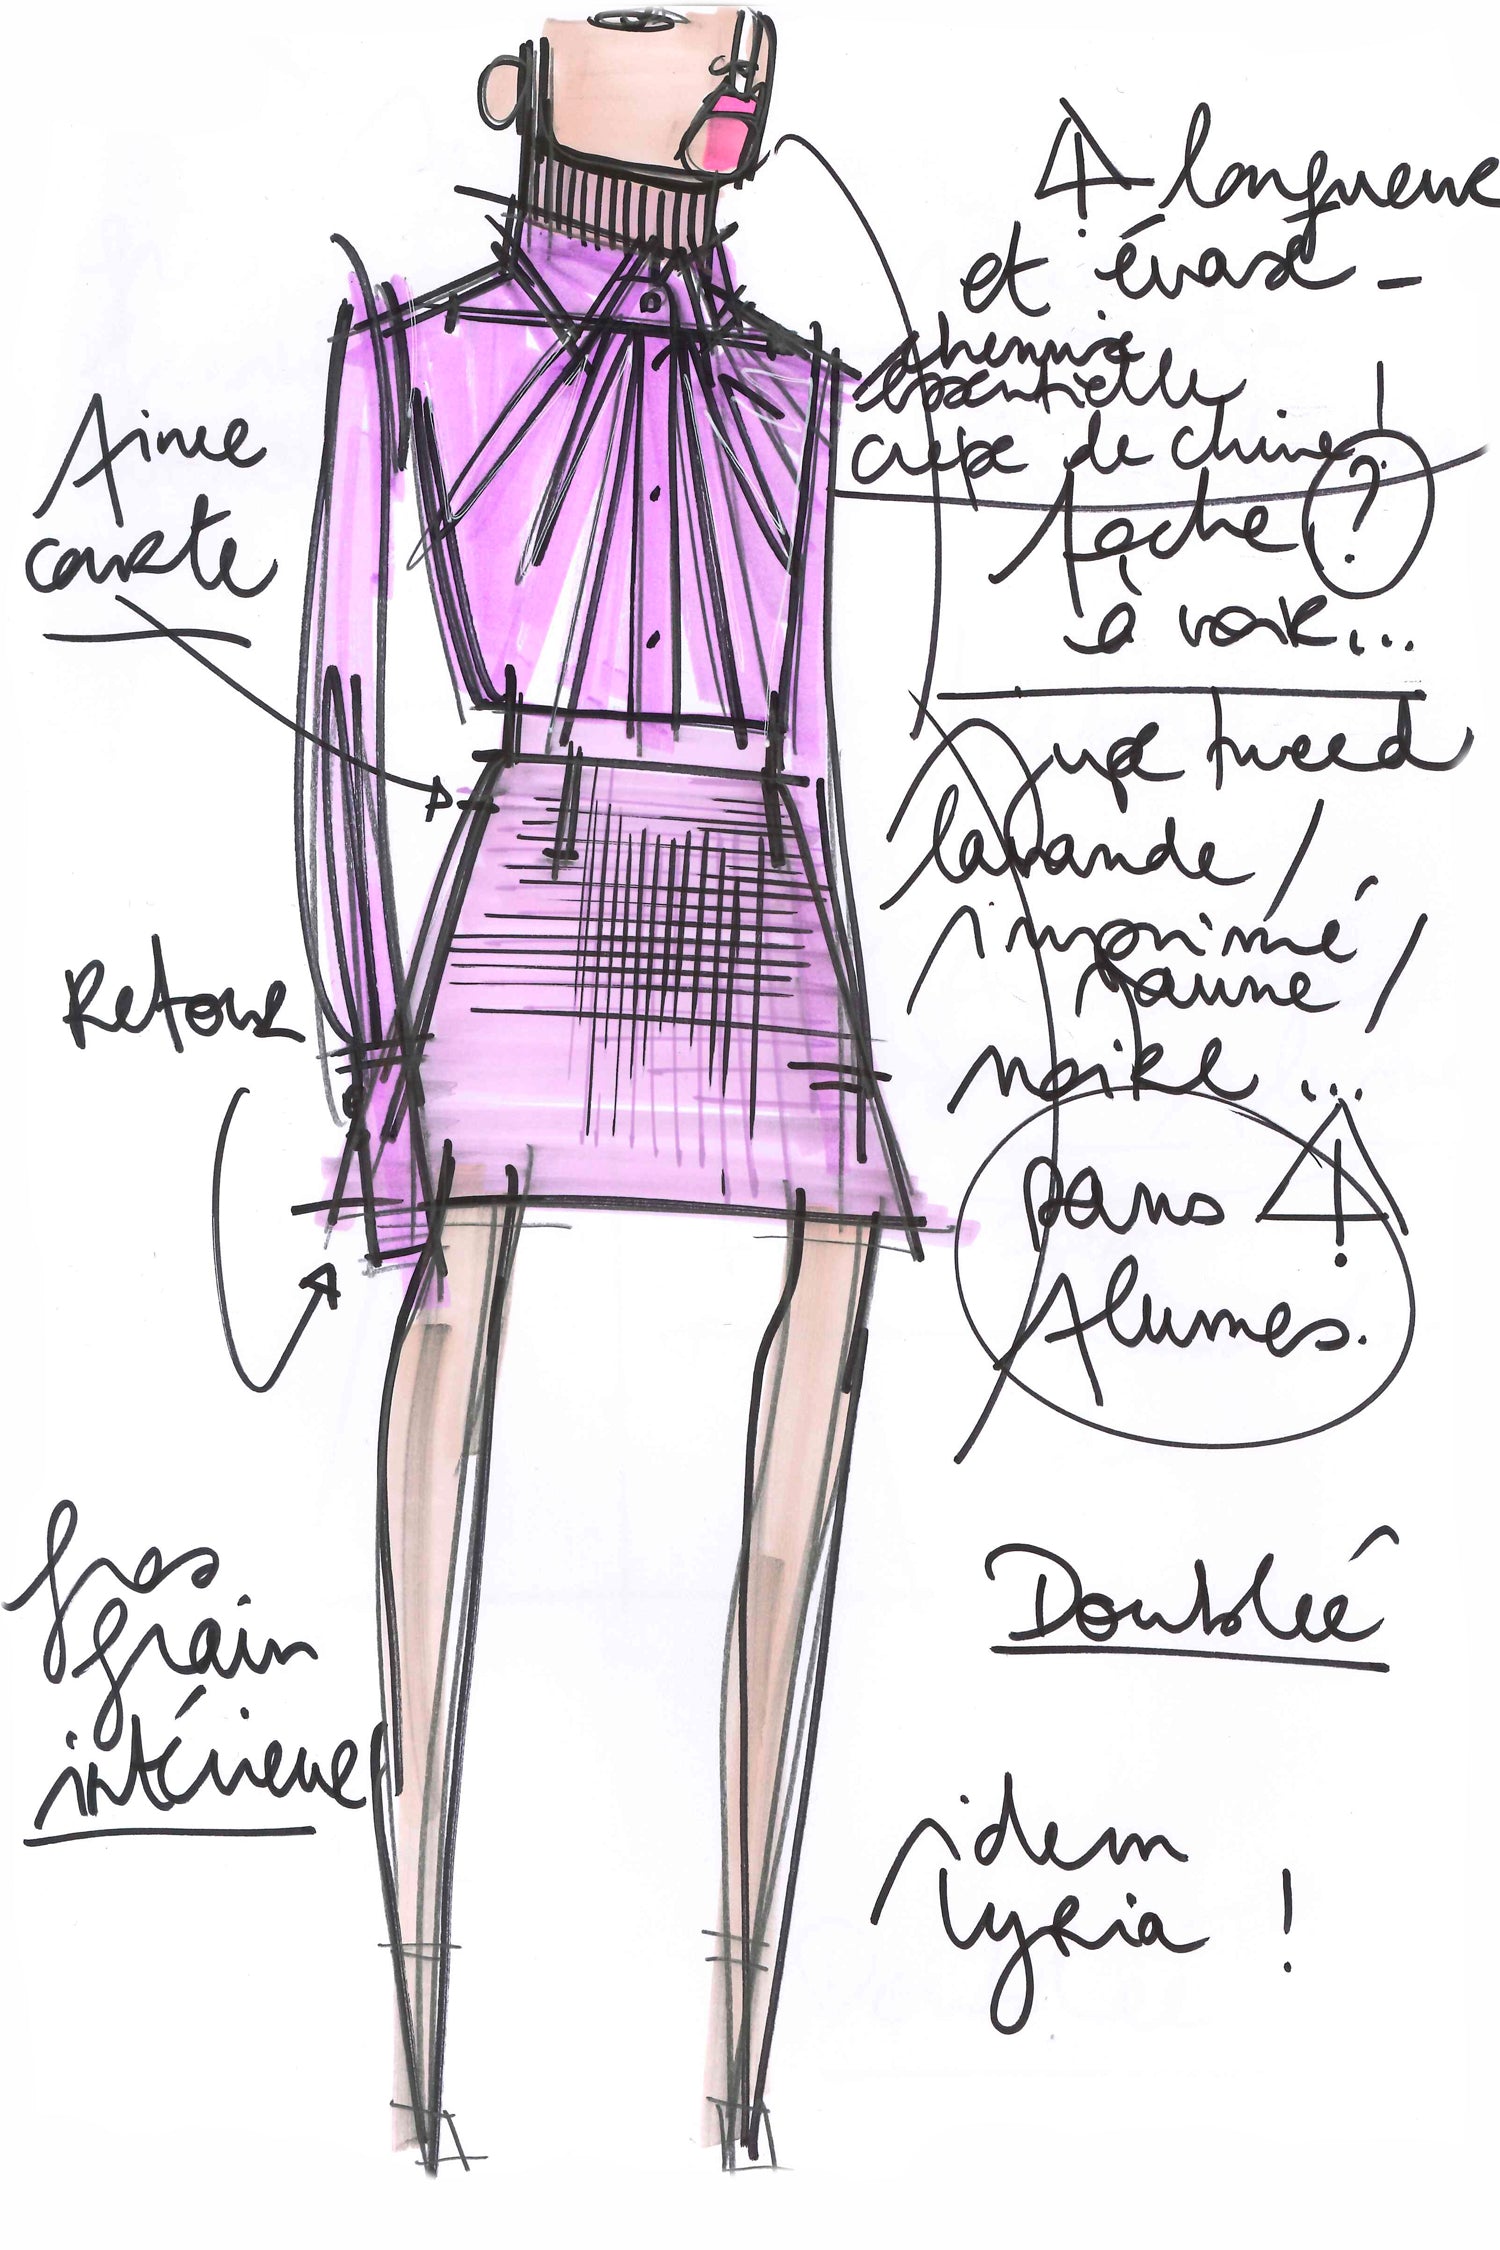 longueur
et évasé -
chemise
essentielle
crêpe de chine
poche ?
à voir...
Jupe tweed
lavande /
imprimé
jaune /
noire ...
pans
Plumes.
Doublée
idem
Lyria !
courte
Retour
gros
grain
intérieur